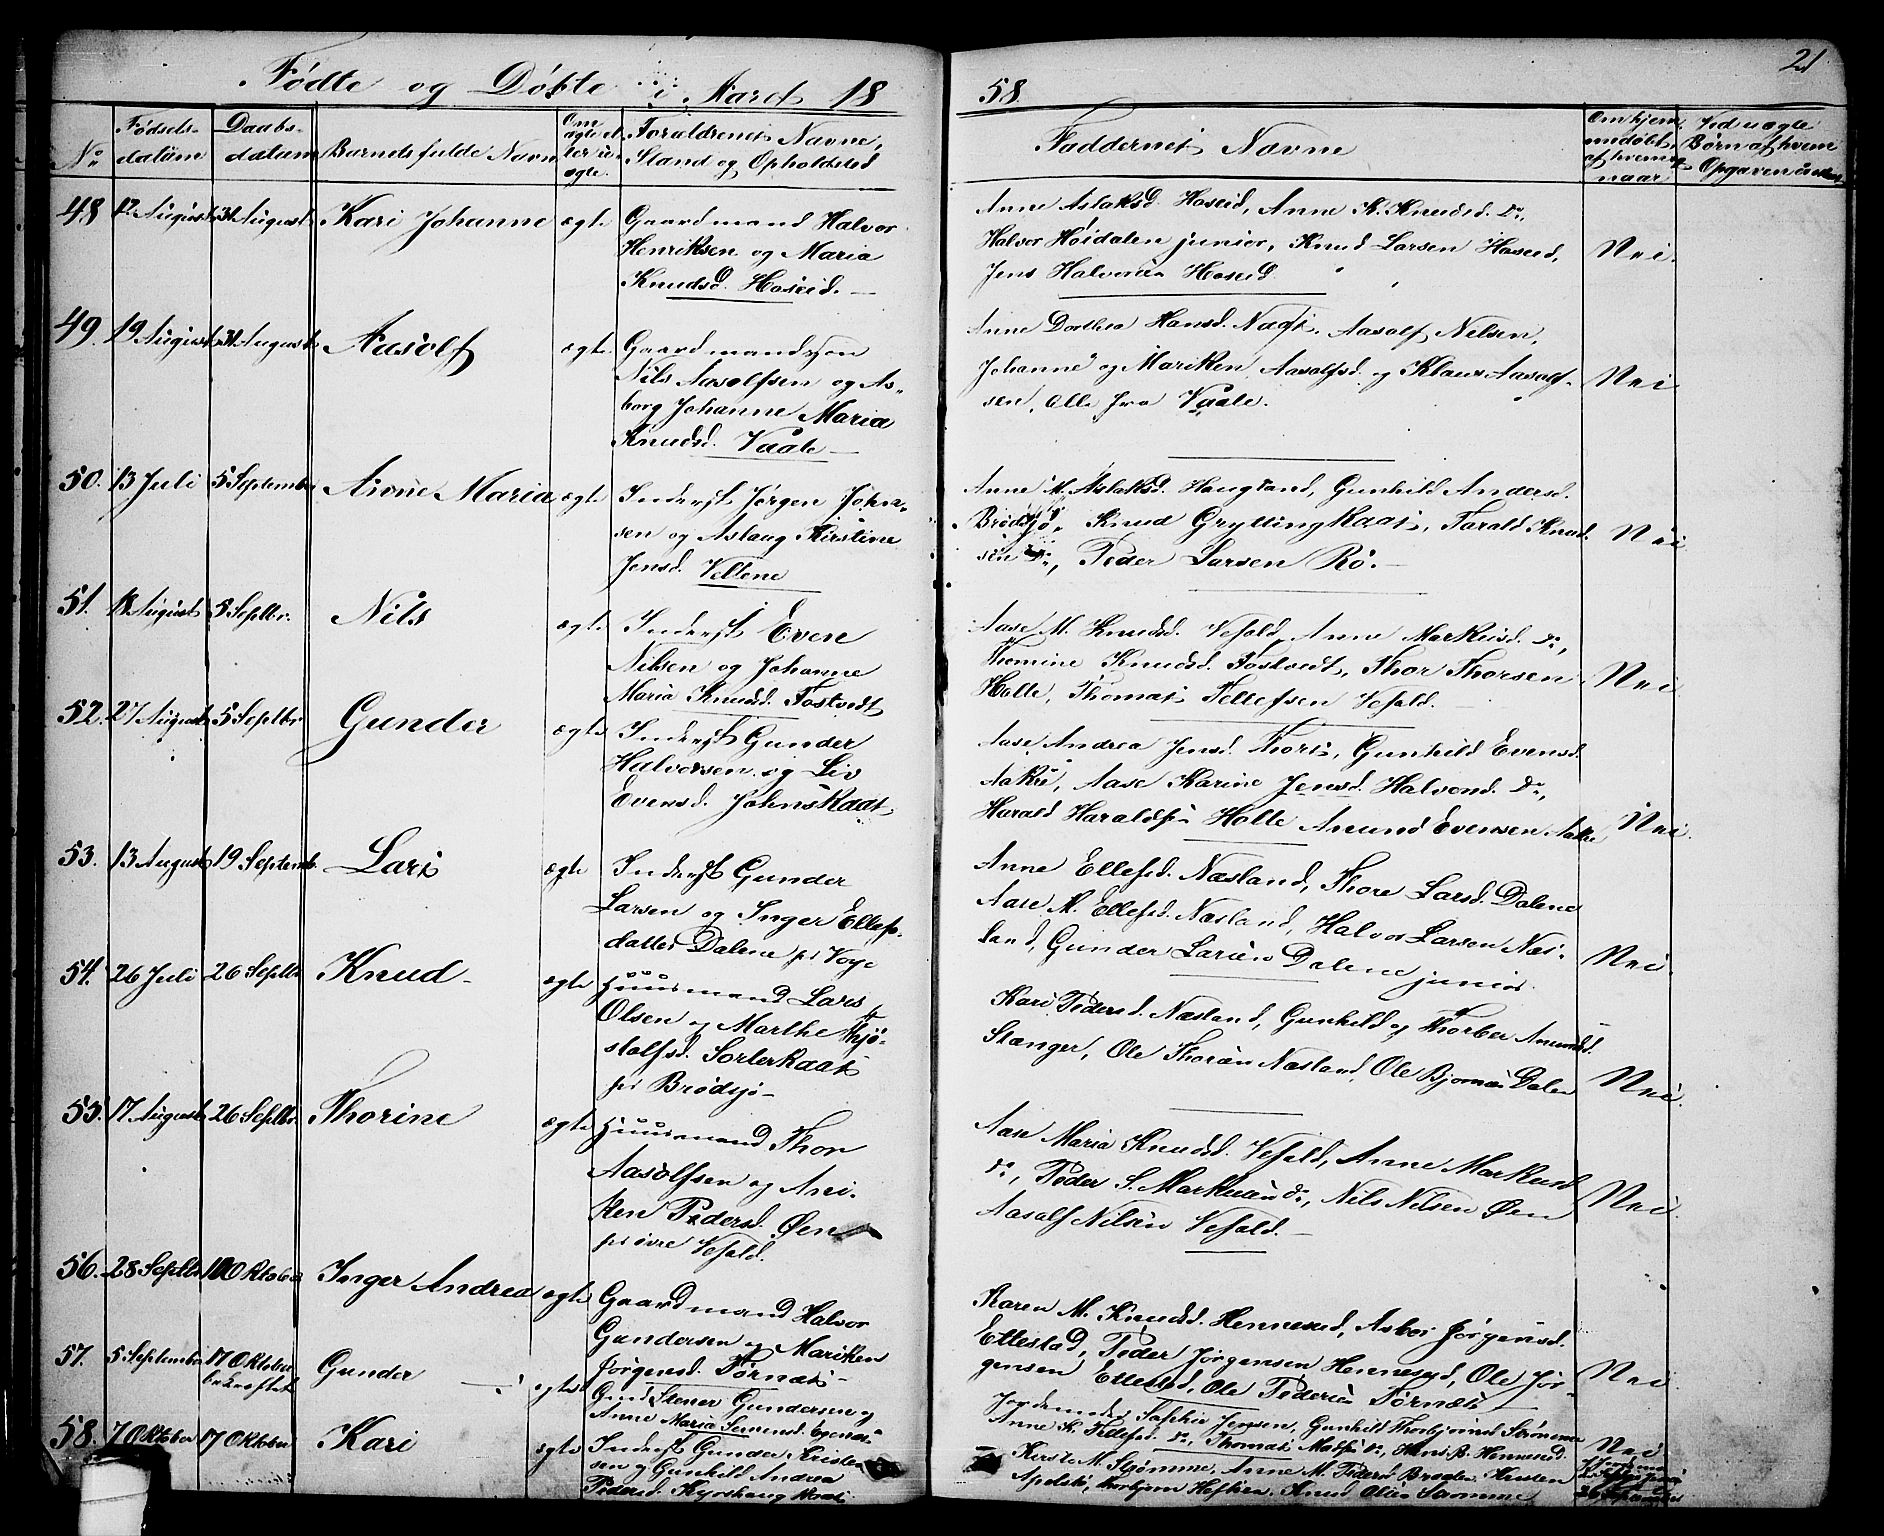 Fødte og Døbte i Aaret 18
58.
21
No
Fødsels-
datum
Daabs-
datum
Barnets fulde Navn
Om
ægte el-
ler u-
ægte.
Forældrenes Navne,
Stand og Opholdsted
Faddernes Navne
Om hjem-
medøbt,
af hvem og
naar
Ved uægte
Børn af hvem
Opgaven
48 12 August 31 August Kari Johanne ægte Gaardmand Halvor
Henriksen og Maria
Knudsd. Haseid.
Anne Aslaksd. Haseid, Anne K. Knudsd. Do,
Halvor Høidalen junior, Knud Larsen Haseid,
Jens Halvorsen Haseid.
Nei.
49. 19 August 31 August Aasolf ægte Gaardmandssøn
Nils Aasolfsen og As-
borg Johanne Maria
Knudsd. Vaale
Anne Dorthea Hansd. Næs, Aasolf Nilsen,
Johanne og Mariken Aasolfsd. og Klaus Aasolf-
sen, alle fra Vaale.
Nei
50. 13 Juli 5 September Anne Maria ægte Inderst Jørgen John-
sen og Aslaug Kirstine
Jensd. Veltene
Anne M. Aslaksd. Haugland, Gunhild Andersd.
Brødsjø, Knud Gryttingkaas, Tarald Knud-
sen Do, Peder Larsen Rø.
Nei
51. 18 August 5 Septbr. Nils ægte Inderst Even
Nilsen og Johanne
Maria Knudsd. Tostvedt
Aase M. Knudsd. Vefald, Anne Markusd. Do,
Thomine Knudsd. Tostvedt, Thor Thorsen
Holte, Thomas Tellefsen Vefald.
Nei
52. 27 August 5 Septbr Gunder ægte Inderst Gunder
Halvorsen og Liv
Evensd. Johnskaas
Aase Andrea Jensd. Thors, Gunhild Evensd.
Aakre, Aase Karine Jensd. Halvorsd. Do,
Harald Haraldsen Holte Amund Evensen Aakre,
Nei.
53. 13 August 19 Septemb. Lars ægte Inderst Gunder
Larsen og Inger Ellefs-
datter Dalene pr Voje
Anne Ellefsd. Næsland, Thore Larsd. Dalene
Aase M. Ellefsd. Næsland, Halvor Larsen Næs-
land, Gunder Larsen Dalene junior.
Nei.
54. 26 Juli 26 Septbr Knud ægte Huusmand Lars
Olsen og Marthe Thjø-
stolfsd. Sorterkaas
pr Brødsjø
Kari Pedersd. Næsland, Gunhild og Thorber Amundsd.
Stanger, Ole Thorsen Næsland, Ole Bjornsen Dalen
Nei.
55. 17 August 26 Septbr. Thorine ægte Huusmand Thor
Aasolfsen og Ani-
ken Pedersd. Øen
pr øvre Vefald.
Aase Maria Knudsd. Vefald, Anne Markusd.
do, Peder S. Markusen do, Nils Nilsen Øen
Aasolf Nilsen Vefald.
Nei.
56. 28 Septbr 10 Oktober Inger Andrea ægte Gaardmand Halvor
Gundersen og Mariken
Jørgensd. Tørnæs
Karen M. Knudsd. Hennesæd, Asbor Jørgensd.
Ettestad, Peder Jørgensen Hennesyd, Ole Jør-
gensen Ettestad, Ole Pedersen Tørnæs
Nei.
57. 5 September 17 Oktober
bekræftet Gunder ægte Gmd. Stener Gundersen og
Anne Maria
Jordemoder Sophie Jensen, Gunhild Thorbjørnsd. Strømme
Anne K. Tellefsd. Do, Thomas Do, Hans B. Hennesæd.
Nei
58. 7 Oktober 17 Oktober Kari ægte Inderst Gunder Kristen-
sen og Gunhild Andrea
Pedersd.
Kirste M. Strømme, Anne M. Pedersd.
Knud Olsen Strømme